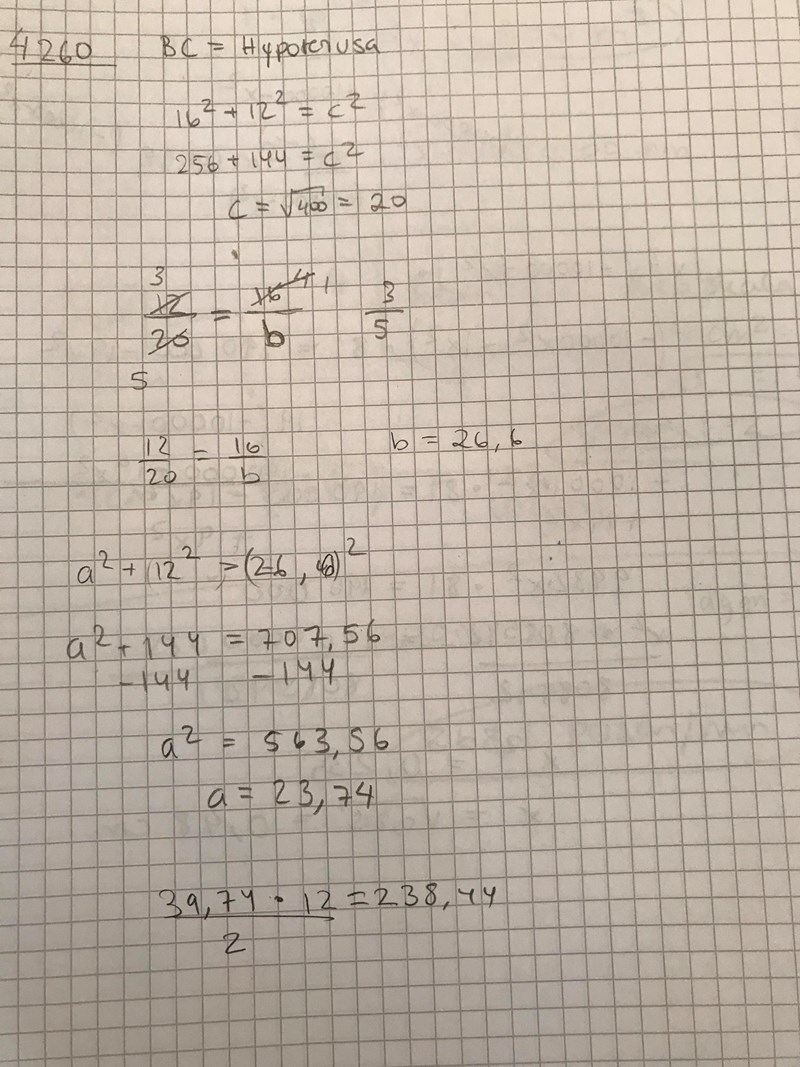 4260 BC = Hypotenusa
16² + 12² = c²
256 + 144 = c²
c = √400 = 20
3
12/20 = 16/b 4 1 3/5
5
12/20 = 16/b b = 26,6
a² + 12² = (26,6)²
a² + 144 = 707,56
-144 -144
a² = 563,56
a = 23,74
39,74 · 12 = 238,44
2